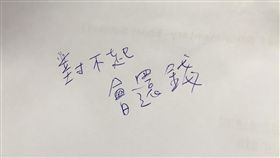 對不起
會還錢